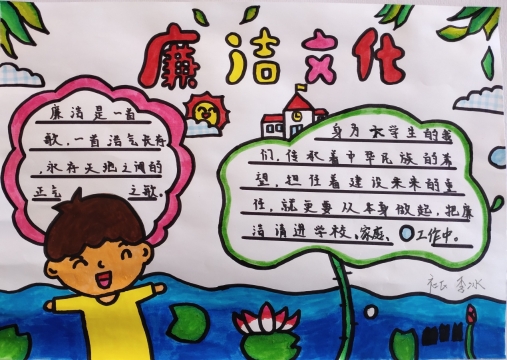 廉洁文化
廉洁是一首
歌，一首浩气长存
，永存天地之间的
正气 之歌。
身为大学生的我
们，传承着中华民族的希
望，担任着建设未来的重
任，就更要从本身做起，把廉
洁清进学校、家庭、工作中。
李冰